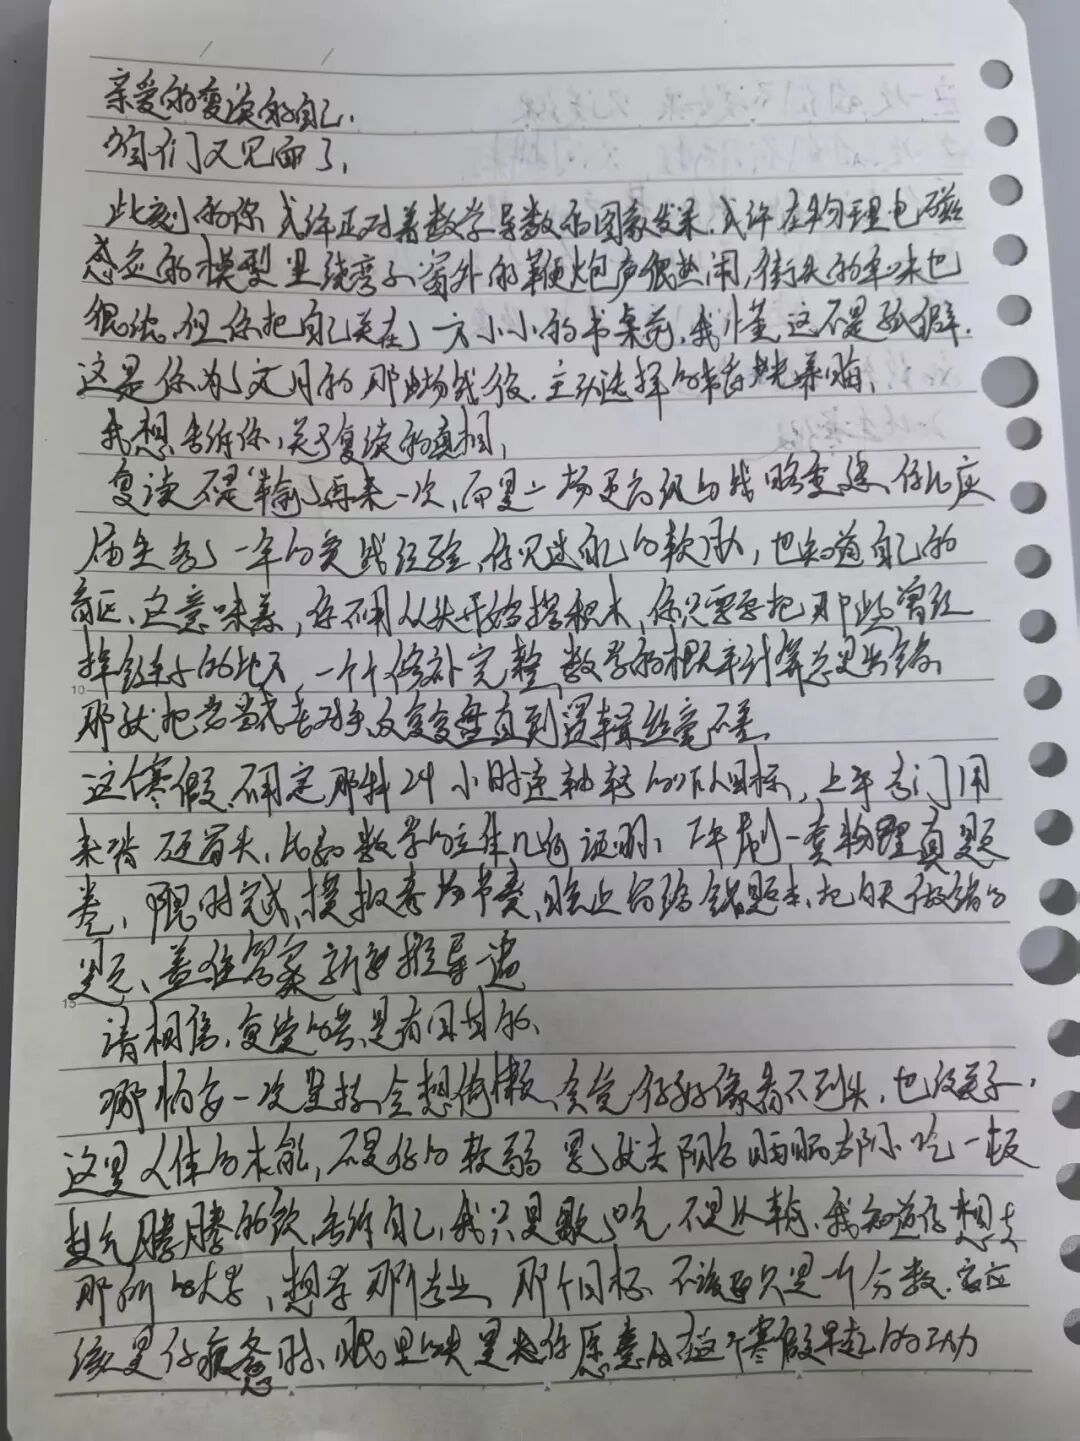 亲爱的复读的自己,
咱们又见面了,
此刻的你或许正对着数学导数的图象发呆.或许在物理电磁
感应的模型里绕弯子.窗外的鞭炮声很热闹,街头的年味也
很浓.但你把自己关在了一方小小的书桌前.我懂.这不是孤僻.
这是你为了六月的那一场战役.主动选择的
我想告诉你,关于复读的真相,
复读不是“输”了再来一次,而是一场更高级的战略重建,你比应
届生多了一年的实战经验,你见过自己的软肋,也知道自己的
这意味着,你不用从头开始搭积木,你只需要把那些曾经
掉链子的地方,一个个修补完整,数学的概率计算总是出错
那就把当成老对手,反复复盘直到逻辑丝毫不差.
这个寒假.不用定那种24小时连轴转的吓人目标,上午专门用
来啃硬骨头,比如数学的立体几何证明、下午刷一套物理真题
卷,限时完成,模拟考场节奏,晚上留给错题本,把白天做错的
题、盖住答案重新推导一遍
请相信,复读的苦是有回甘的、
哪怕每一次坚持会想偷懒,会觉得好像看不到头,也没关系,
这是人体的本能,不是你的软弱 累了就去阳台晒晒太阳 吃一顿
热气腾腾的饭,告诉自己,我只是歇口气,不是认输.我知道你想去
那所的大学,想学那个专业、那个目标不该只是一个分数.它应
该是你疲惫时、眼里的光是让你愿意在这个寒假早起的动力